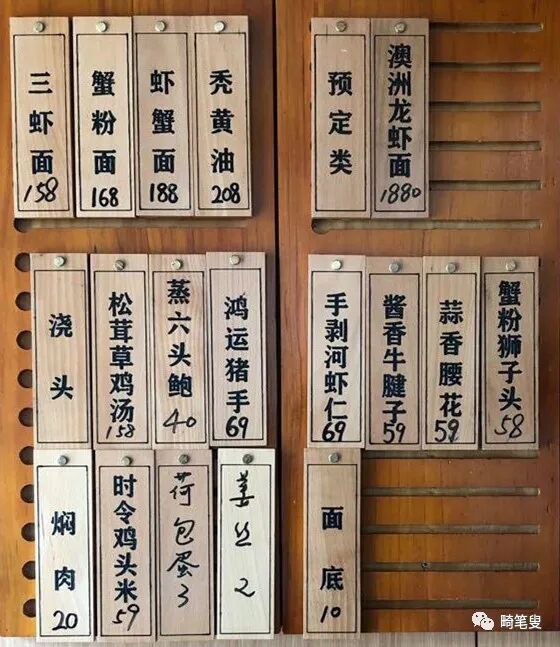 三虾面
158
蟹粉面
168
虾蟹面
188
秃黄油
208
预定类
澳洲龙虾面
1880
浇头
松茸草鸡汤
158
蒸六头鲍
40
鸿运猪手
69
手剥河虾仁
69
酱香牛腱子
59
蒜香腰花
59
蟹粉狮子头
58
焖肉
20
时令鸡头米
59
荷包蛋
3
姜丝
2
面底
10
畸笔叟